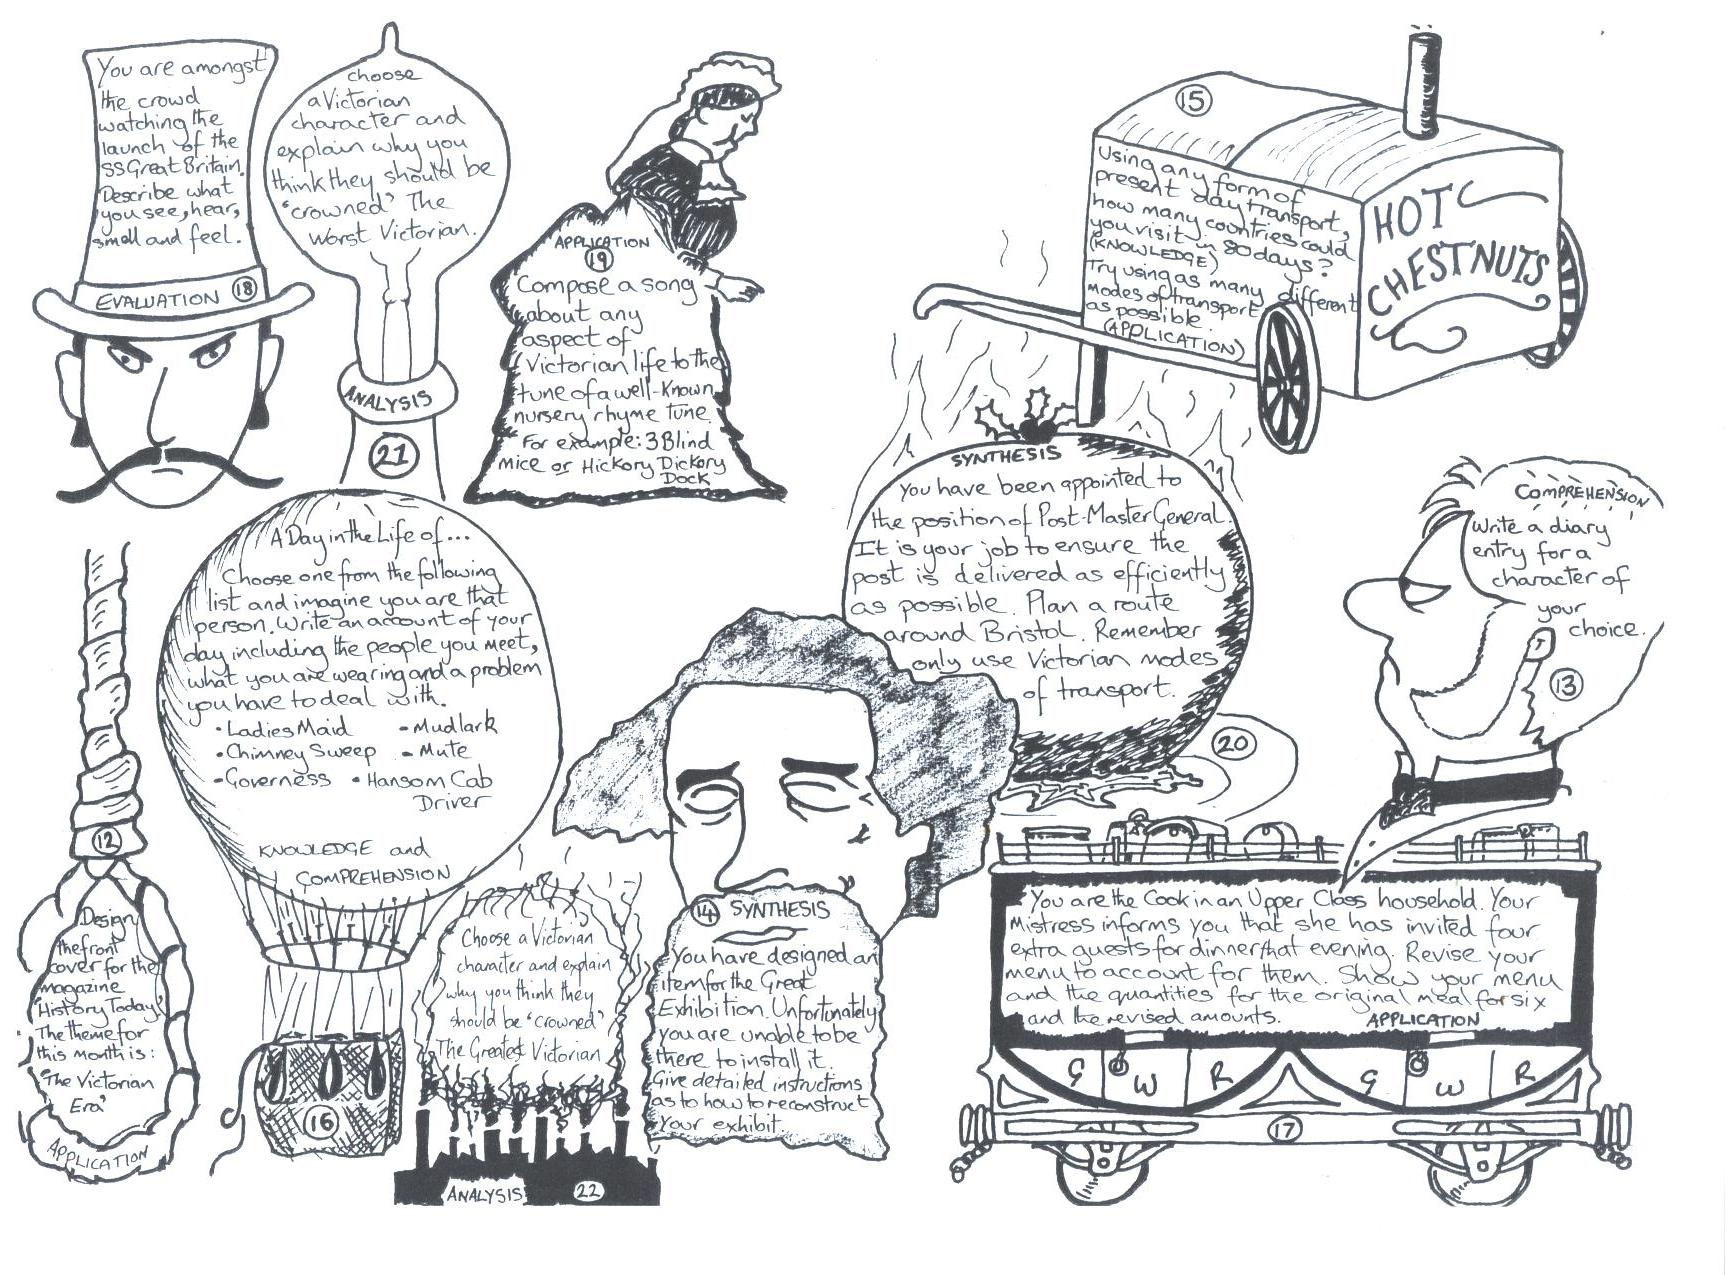 You are amongst
the crowd
watching the
launch of the
SS Great Britain.
Describe what
you see, hear,
smell and feel.
EVALUATION 18
choose
a Victorian
character and
explain why you
think they should be
'crowned' The
Worst Victorian.
ANALYSIS
21
APPLICATION
19
Compose a song
about any
aspect of
Victorian life to the
tune of a well-known
nursery rhyme tune.
For example: 3 Blind
Mice or Hickory Dickory
Dock
15
Using any form of
present day transport,
how many countries could
you visit in 80 days?
(KNOWLEDGE)
Try using as many different
modes of transport
as possible.
(APPLICATION)
HOT
CHESTNUTS
SYNTHESIS
You have been appointed to
the position of Post-Master General.
It is your job to ensure the
post is delivered as efficiently
as possible. Plan a route
around Bristol. Remember
only use Victorian modes
of transport.
20
COMPREHENSION
Write a diary
entry for a
character of
your
choice.
13
12
Design
the front
cover for the
magazine
'History Today'.
The theme for
this month is:
'The Victorian
Era'
APPLICATION
A Day in the Life of...
Choose one from the following
list and imagine you are that
person. Write an account of your
day including the people you meet,
what you are wearing and a problem
you have to deal with.
• Ladies Maid - Mudlark
• Chimney Sweep - Mute
- Governess • Hansom Cab
Driver
KNOWLEDGE and
COMPREHENSION
16
Choose a Victorian
character and explain
why you think they
should be 'crowned'
The Greatest Victorian
ANALYSIS 22
14 SYNTHESIS
You have designed an
item for the Great
Exhibition. Unfortunately
you are unable to be
there to install it.
Give detailed instructions
as to how to reconstruct
your exhibit.
You are the Cook in an Upper Class household. Your
Mistress informs you that she has invited four
extra guests for dinner that evening. Revise your
menu to account for them. Show your menu
and the quantities for the original meal for six
and the revised amounts. APPLICATION
G W R G W R
17